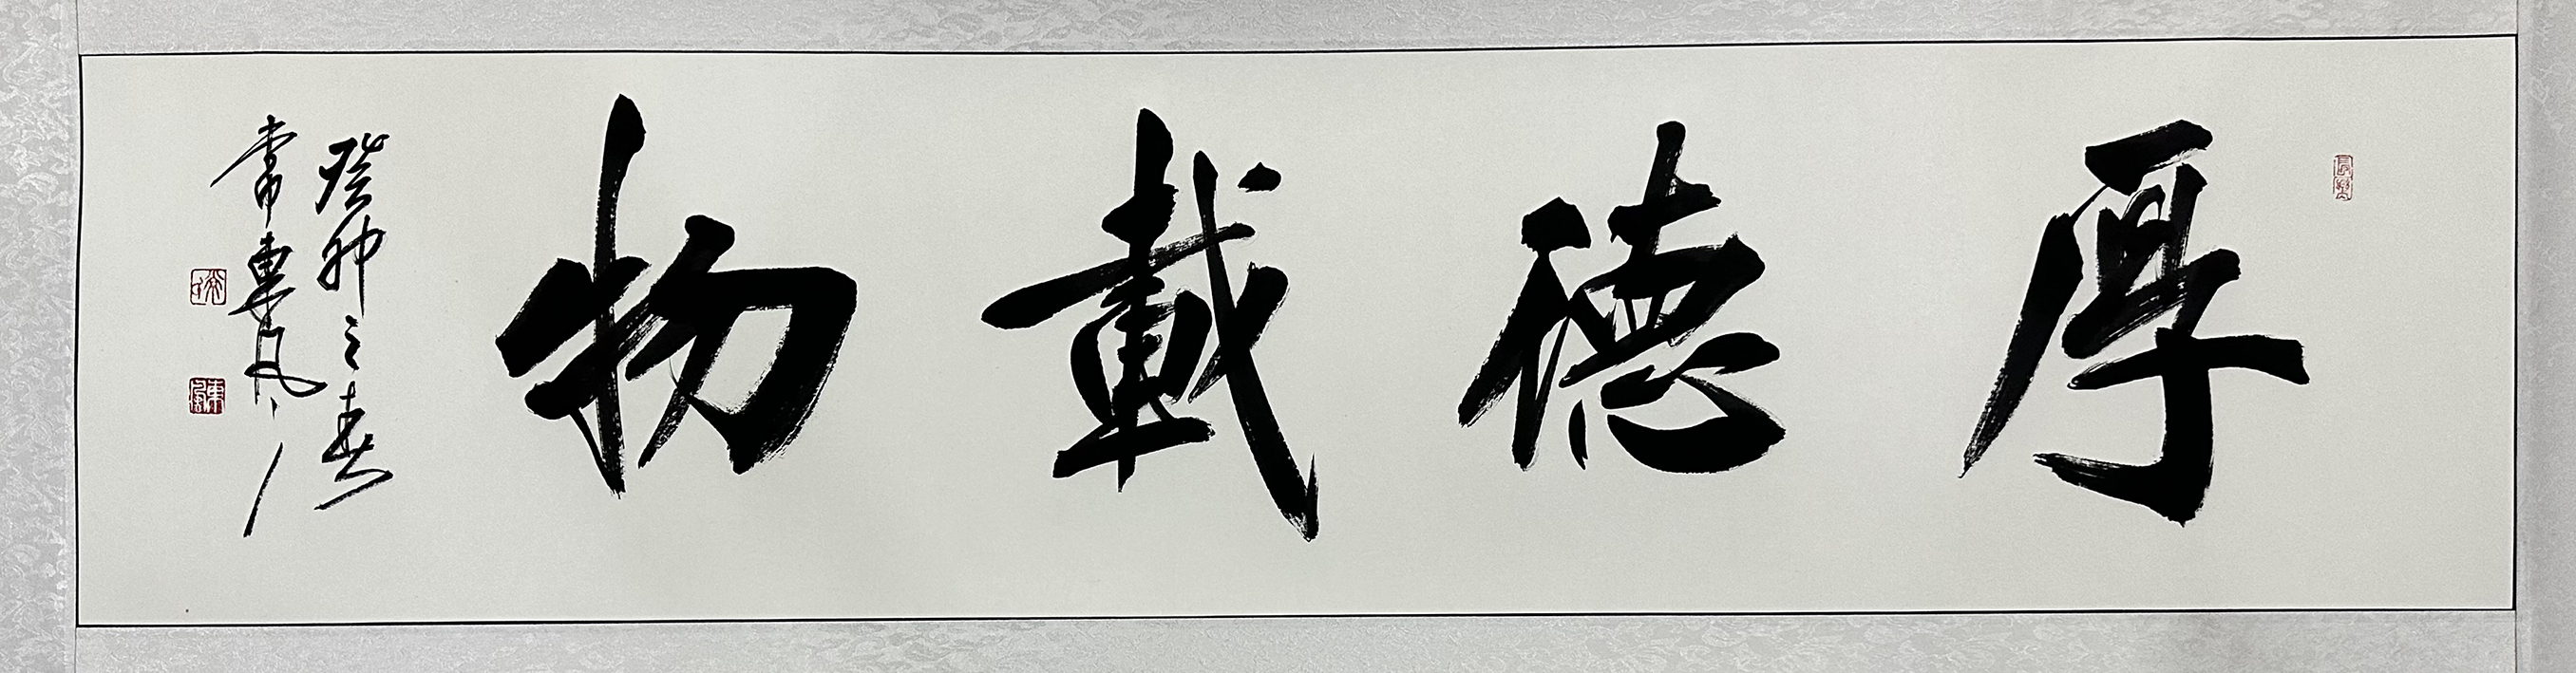 厚德載物
癸卯之春
常東風